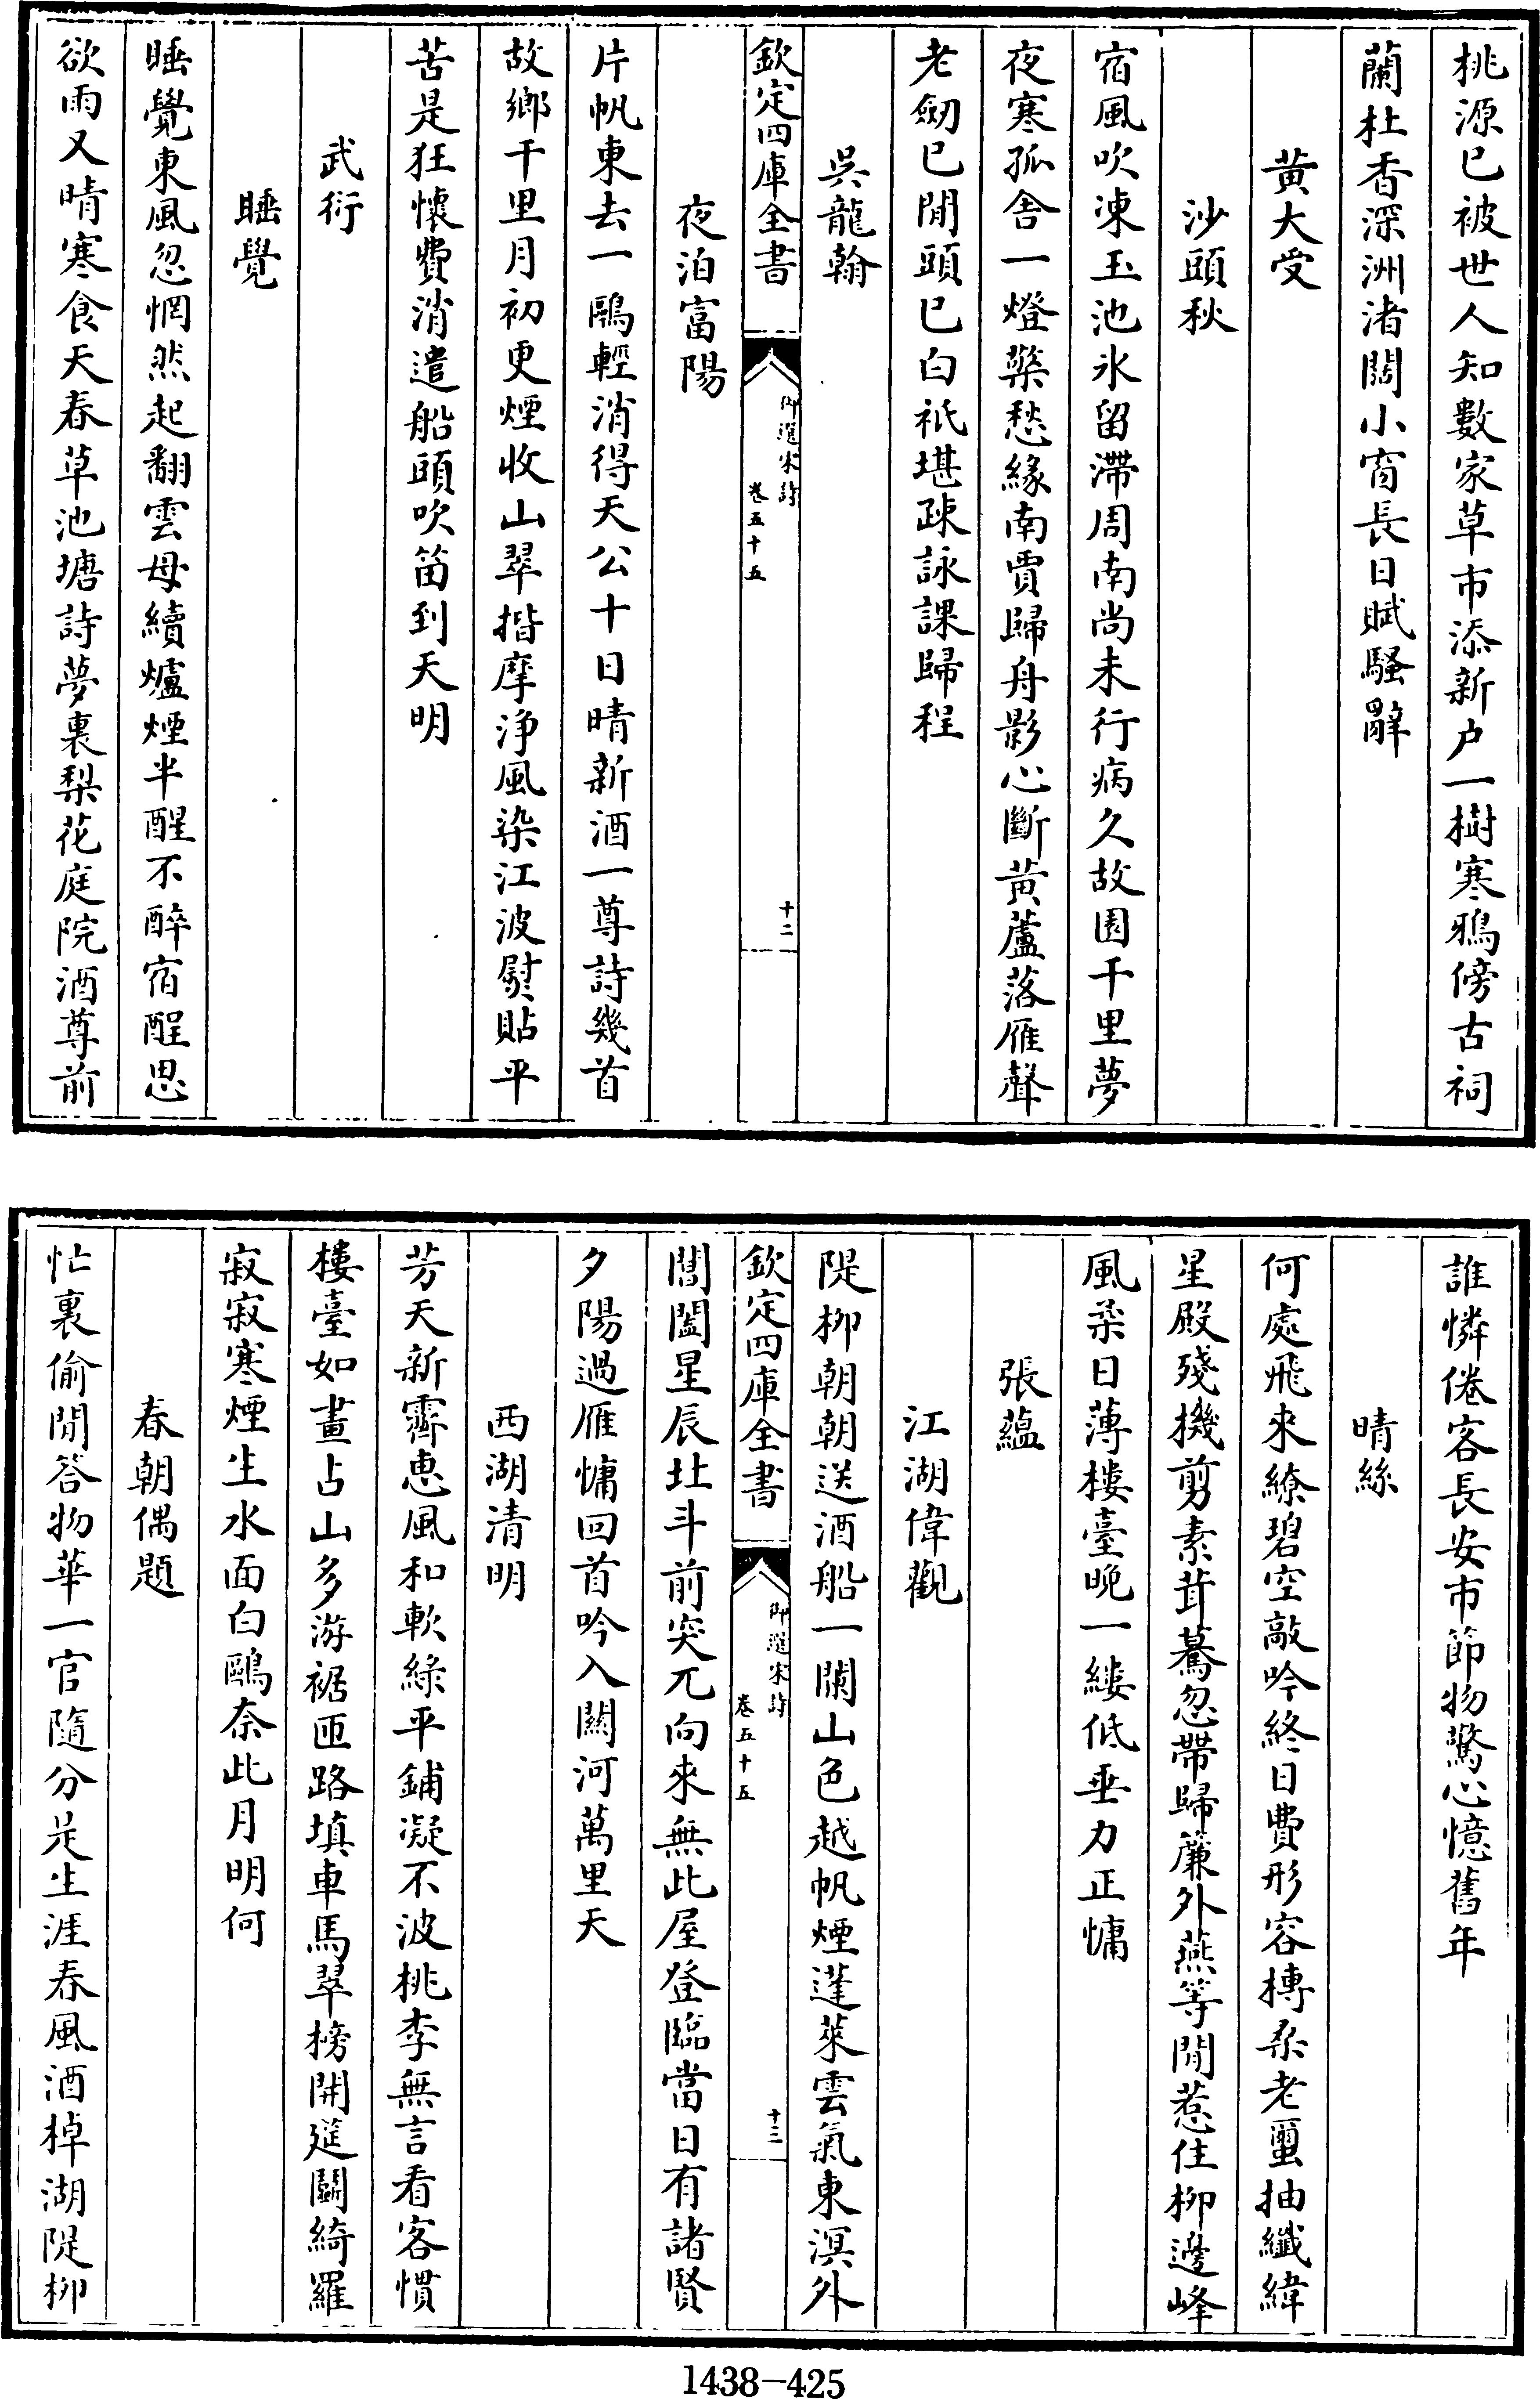 桃源已被世人知數家草市添新户一樹寒鴉傍古祠
蘭杜香深洲渚闊小窗長日賦騷辭
黄大受
沙頭秋
宿風吹凍玉池氷留滯周南尚未行病久故園千里夢
夜寒孤舍一燈檠愁緣南賈歸舟影心斷黄蘆落雁聲
老劒已閒頭已白祇堪疎詠課歸程
吳龍翰
欽定四庫全書
御選宋詩
卷五十五
十二
夜泊富陽
片帆東去一鷗輕消得天公十日晴新酒一尊詩幾首
故鄉千里月初更煙收山翠揩摩浄風染江波熨貼平
苦是狂懷費消遣船頭吹笛到天明
武衍
睡覺
睡覺東風忽惘然起翻雲母續爐煙半醒不醉宿酲思
欲雨又晴寒食天春草池塘詩夢裏梨花庭院酒尊前
誰憐倦客長安市節物驚心憶舊年
晴絲
何處飛來繚碧空敲吟終日費形容摶桑老蠒抽纖緯
星殿殘機剪素茸驀忽帶歸簾外燕等閒惹住柳邊峰
風柔日薄樓臺晚一縷低垂力正慵
張藴
江湖偉觀
隄柳朝朝送酒船一闌山色越帆煙蓬萊雲氣東溟外
欽定四庫全書
御選宋詩
卷五十五
十三
閶闔星辰北斗前突兀向來無此屋登臨當日有諸賢
夕陽過雁慵回首吟入關河萬里天
西湖清明
芳天新霽恵風和軟綠平鋪凝不波桃李無言看客慣
樓臺如畫占山多游裾匝路填車馬翠榜開筵鬬綺羅
寂寂寒煙生水面白鷗奈此月明何
春朝偶題
忙裏偷閒答物華一官隨分是生涯春風酒棹湖隄柳
1438-425